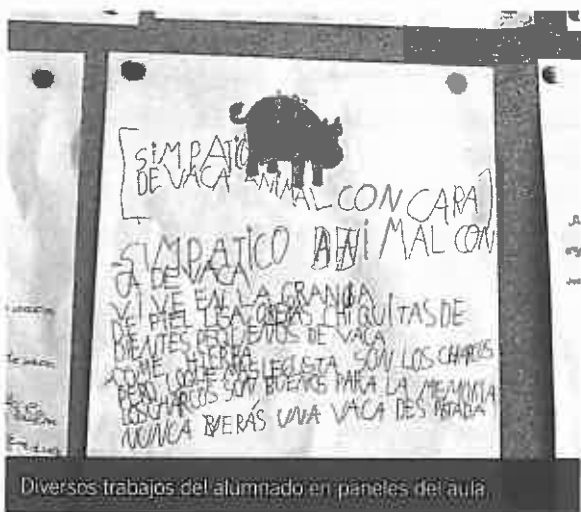 [SIMPATIC
DE VACA ANIMAL CON CARA]
SIMPATICO ANIMAL CON
DE VACA
VIVE EN LA GRANJA
DE PIEL LISA OREJAS CHIQUITAS DE
DIENTES PEQUEÑOS DE VACA
COME HIERBA
PERO LO QUE MAS LE GUSTA SON LOS CHARCOS
LOS CHARCOS SON BUENOS PARA LA MEMORIA
NUNCA VERÁS UNA VACA DESPATADA
Diversos trabajos del alumnado en paneles del aula